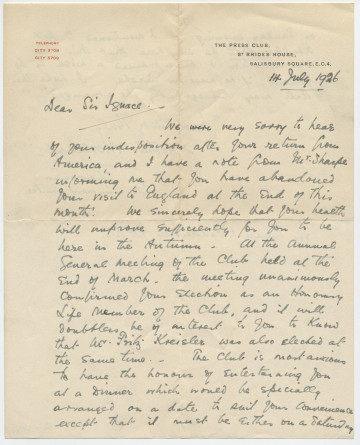 TELEPHONE:
CITY 2706
CITY 2706
THE PRESS CLUB,
ST BRIDES HOUSE,
SALISBURY SQUARE, E.C.4.
14 July 1926
Dear Sir Ignace -
We were very sorry to hear
of your indisposition after your return from
America, and I have a note from Mr Sharpe
informing me that you have abandoned
your visit to England at the end of this
month. We sincerely hope that your health
will improve sufficiently for you to be
here in the Autumn. At the Annual
General meeting of the Club held at the
end of March - the meeting unanimously
confirmed your election as an Honorary
Life Member of the Club, and it will
doubtless be of interest to you to know
that Mr Fritz Kreisler was also elected at
the same time. - The Club is most anxious
to have the honour of entertaining you
at a Dinner which would be specially
arranged on a date to suit your convenience
except that it must be either on a Saturday